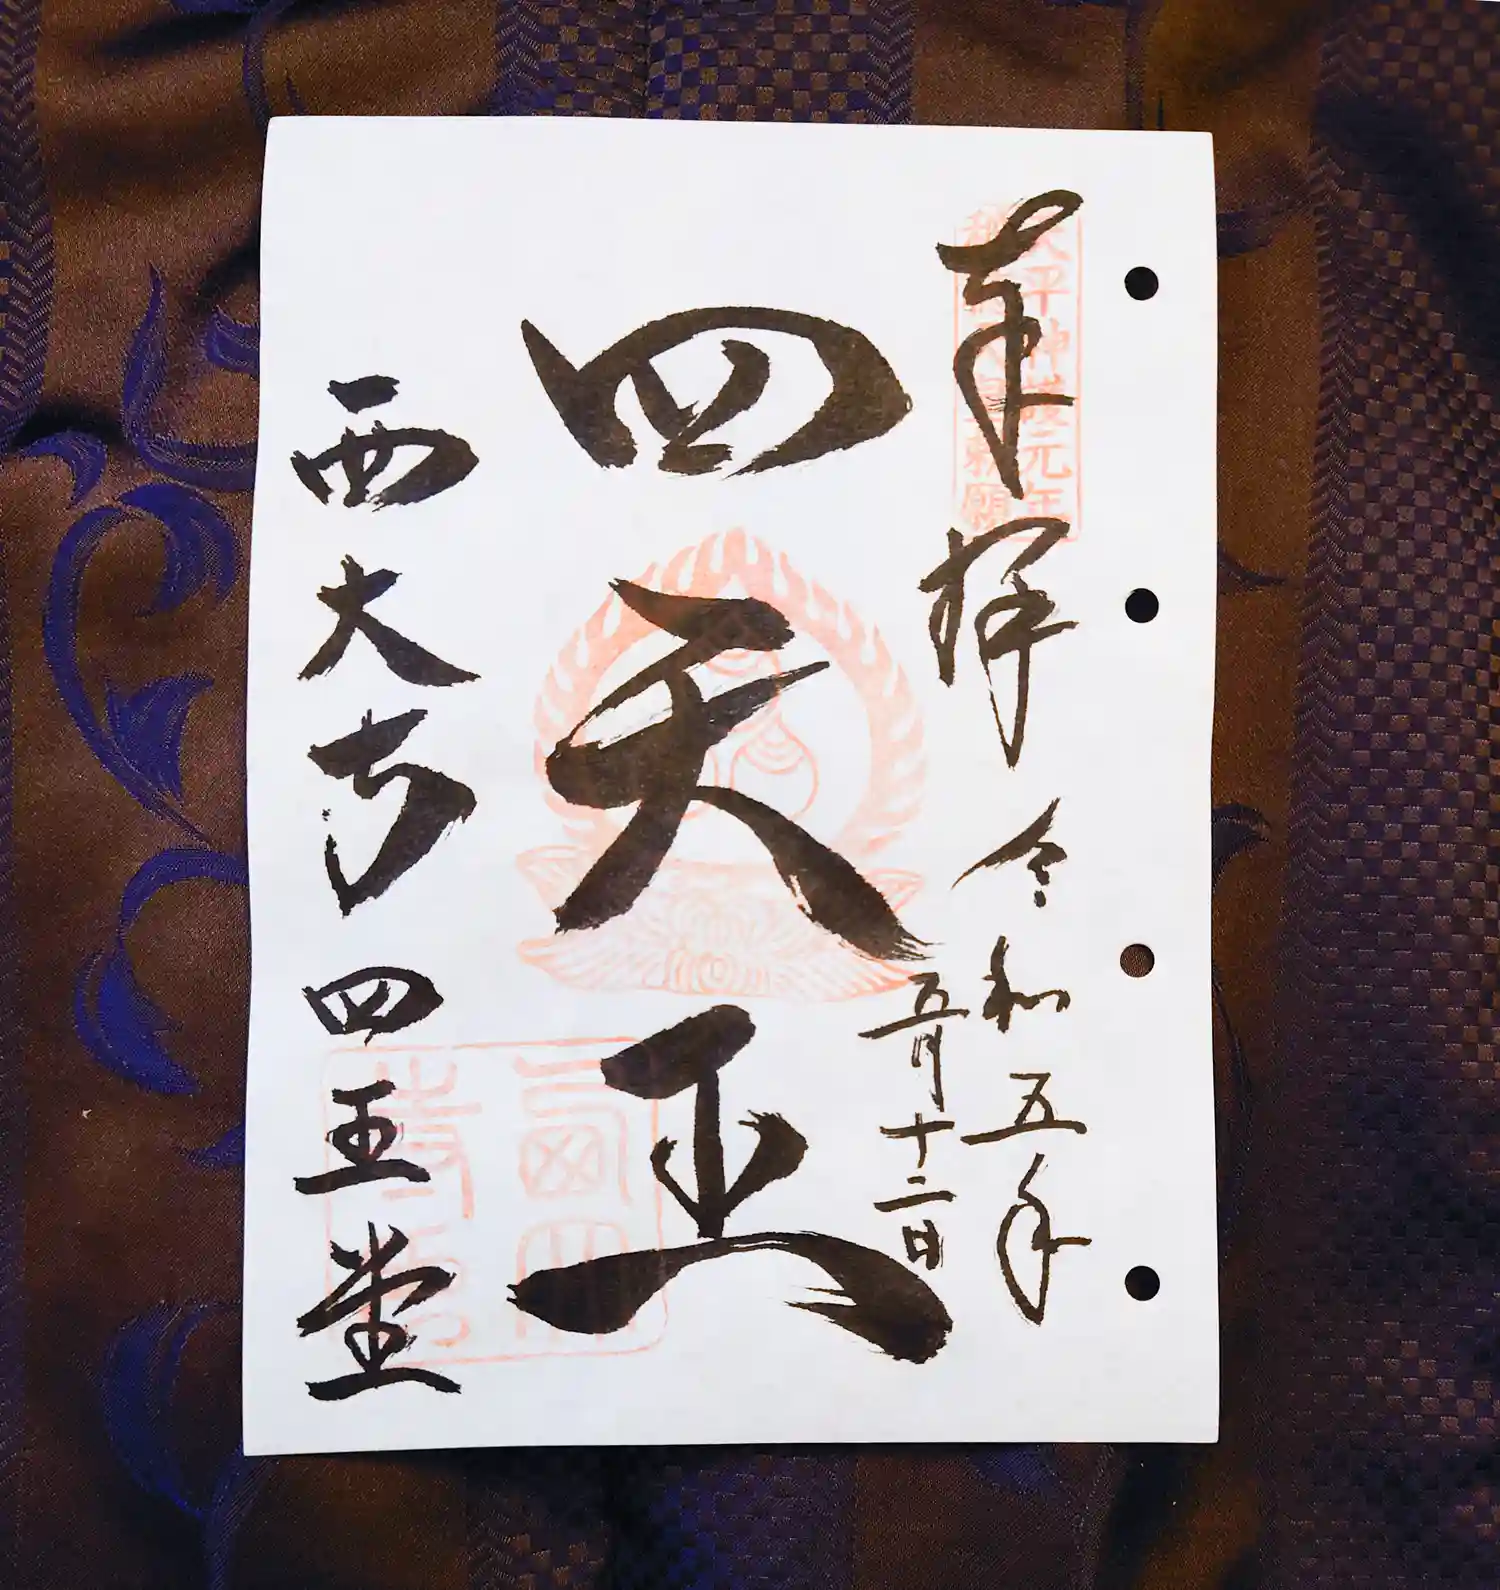 奉拝
天平神護元年
称徳天皇勅願
令和五年
五月十二日
四天王
西大寺 四王堂